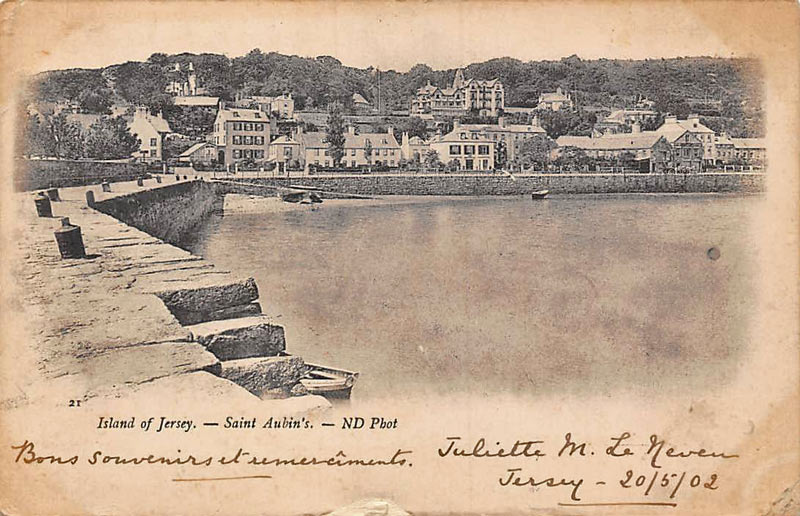 21
Island of Jersey. — Saint Aubin's. — ND Phot
Bons souvenirs et remercîments.
Juliette M. Le Neveu
Jersey - 20/5/02